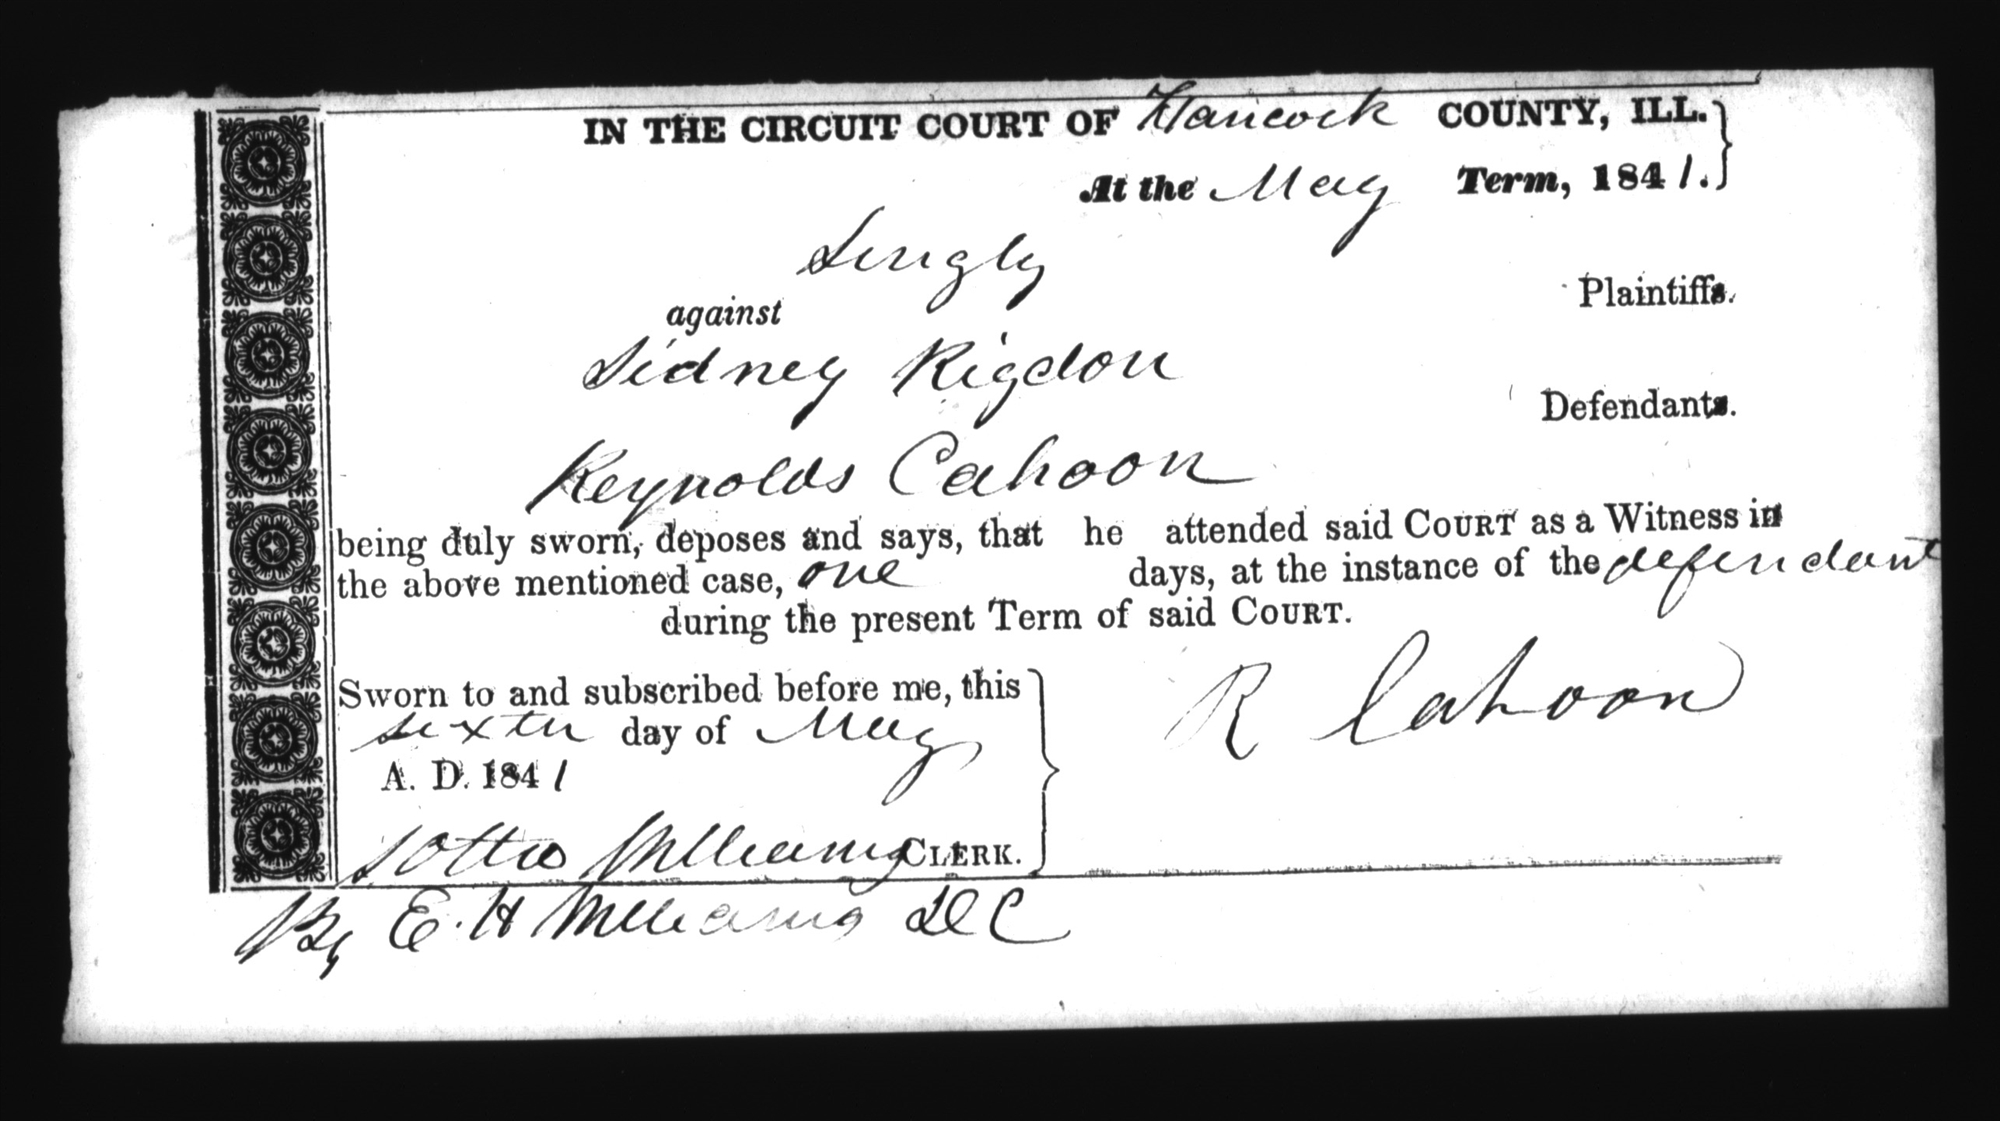 IN THE CIRCUIT COURT OF Hancock COUNTY, ILL.
At the May Term, 1841.
Singly
Plaintiffs.
against
Sidney Rigdon
Defendants.
Reynolds Cahoon
being duly sworn, deposes and says, that he attended said COURT as a Witness in
the above mentioned case, one days, at the instance of the defendant
during the present Term of said COURT.
Sworn to and subscribed before me, this
sixth day of May
A. D. 1841
R Cahoon
S Otho Williams CLERK.
By E. H Williams DC